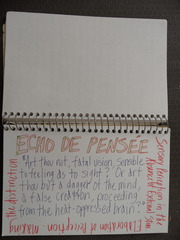 ECHO DE PENSÉE
"Art thou not, fatal vision, sensible
to feeling as to sight? Or art
thou but a dagger of the mind,
a false creation, proceeding
from the heat-oppressed brain?
Making
the distinction
Sensory Perception in the
Elaboration of Perception.